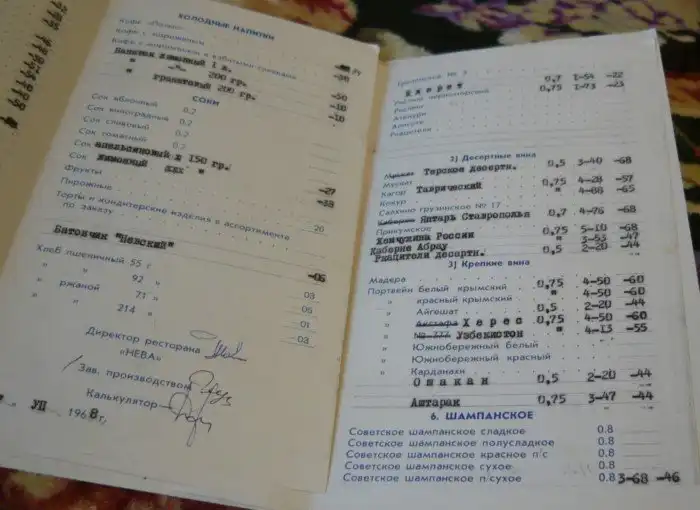 ХОЛОДНЫЕ НАПИТКИ
Кофе с мороженым
Напиток лимонный 1 л. -50
" -"- 200 гр. -10
" гранатовый 200 гр. -10
СОКИ
Сок яблочный 0.2
Сок виноградный 0.2
Сок сливовый 0.2
Сок томатный 0.2
Сок апельсиновый 150 гр.
Сок лимонный
Фрукты -27
Пирожные -33
Торты и кондитерские изделия в ассортименте по заказу 20
Батончик "Невский"
Хлеб пшеничный 55 г -05
" " 92 " 03
" ржаной 71 " 05
" " 214 " 01
03
Директор ресторана
«НЕВА»
Зав. производством
Калькулятор
VII 1968 г.
Грузинское № 3 0,7 1-54 -22
Херес 0,75 1-73 -23
Рислинг
Алиготе
Ркацители
2) Десертные вина
Терское десертн. 0,5 3-40 -68
Мускат
Кагор Таврический 0,75 4-28 -57
Кокур " 4-88 -65
Салхино грузинское № 17
Янтарь Ставрополья 0,7 4-76 -68
Прикумское
Жемчужина России 0,75 5-10 -68
Каберне Абрау " 3-53 -47
Ркацители десертн. 0,5 2-20 -44
3) Крепкие вина
Мадера
Портвейн белый крымский 0,75 4-50 -60
" красный крымский " 4-50 -60
" Айгешат 0,5 2-20 -44
" Херес 0,75 4-50 -60
" № 777 Узбекистон " 4-13 -55
" Южнобережный белый
" Южнобережный красный
" Карданахи
Ошакан 0,5 2-20 -44
Аштарак 0,75 3-47 -44
6. ШАМПАНСКОЕ
Советское шампанское сладкое 0.8
Советское шампанское полусладкое 0.8
Советское шампанское красное п/с 0.8
Советское шампанское сухое 0.8
Советское шампанское п/сухое 0.8 3-68 -46